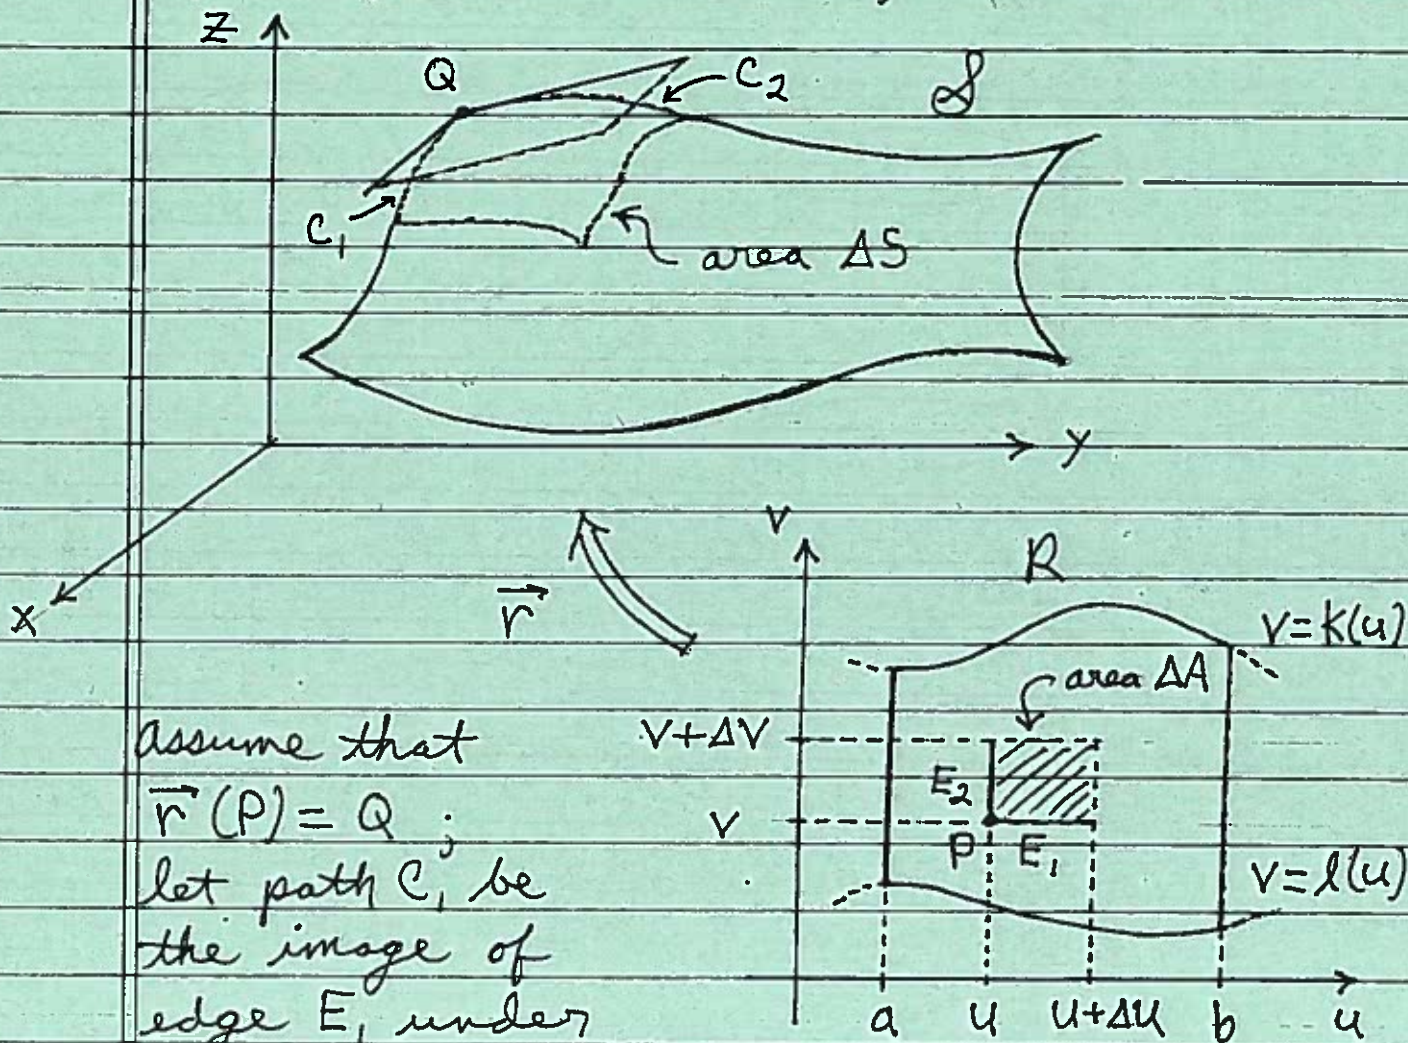 Z
Q
C₂
S
C₁
area ΔS
y
x
r⃗
v
R
v=k(u)
area ΔA
v+Δv
E₂
v
P
E₁
v=l(u)
a
u
u+Δu
b
u
assume that
r⃗(P) = Q ;
let path C₁ be
the image of
edge E₁ under